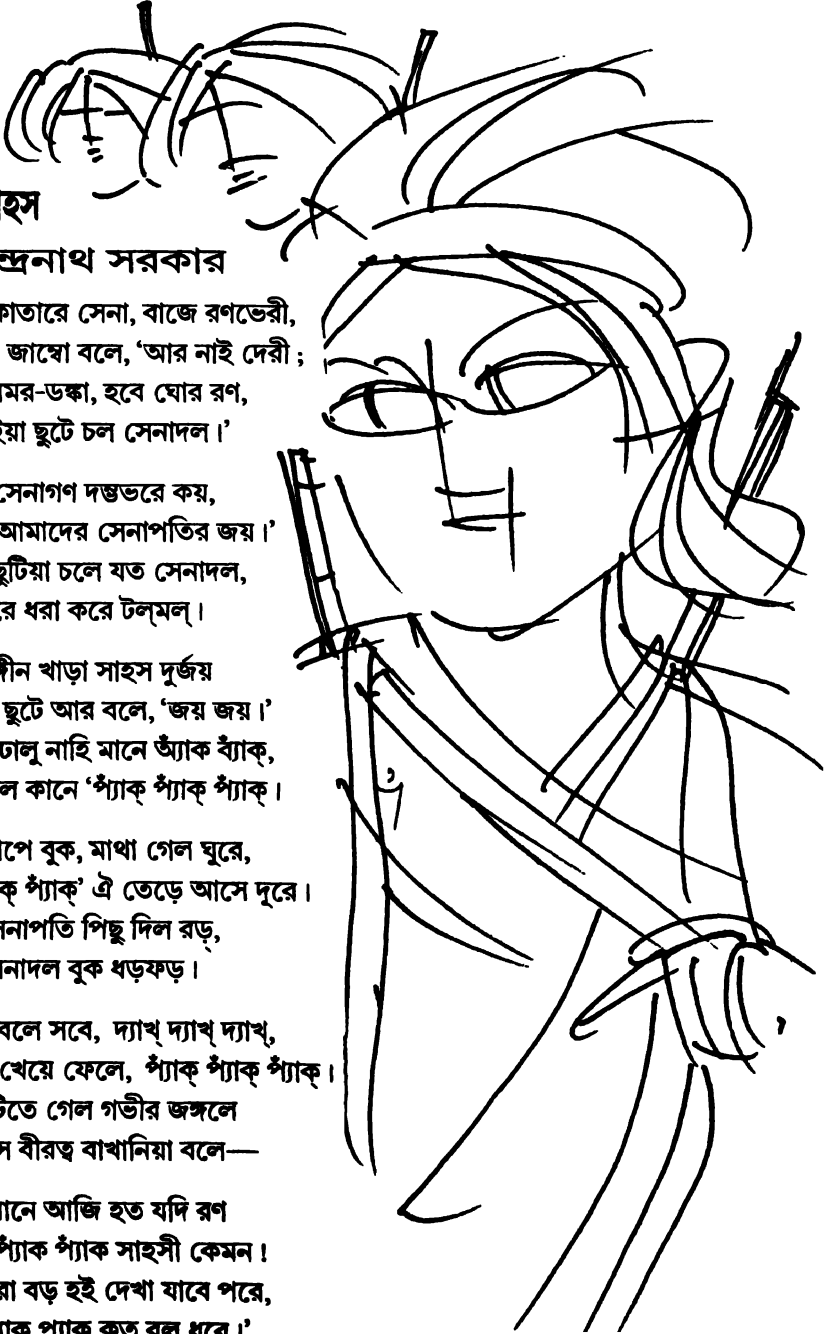 ন্দ্রনাথ সরকার
কাতারে সেনা, বাজে রণভেরী,
জাম্বো বলে, ‘আর নাই দেরী ;
মর-ডঙ্কা, হবে ঘোর রণ,
ছুটে চল সেনাদল।’
সেনাগণ দম্ভভরে কয়,
আমাদের সেনাপতির জয়।’
ছুটিয়া চলে যত সেনাদল,
রে ধরা করে টল্‌মল্‌।
ঙ্গীন খাড়া সাহস দুর্জয়
ছুটে আর বলে, ‘জয় জয়।’
ঢালু নাহি মানে অ্যাঁক ব্যাঁক্‌,
ল কানে ‘প্যাঁক্‌ প্যাঁক্‌ প্যাঁক্‌।
পে বুক, মাথা গেল ঘুরে,
ক্‌ প্যাঁক্‌’ ঐ তেড়ে আসে দূরে।
সেনাপতি পিছু দিল রড়,
নাদল বুক ধড়ফড়।
বলে সবে, দ্যাখ্‌ দ্যাখ্‌ দ্যাখ্‌,
খেয়ে ফেলে, প্যাঁক্‌ প্যাঁক্‌ প্যাঁক্‌।
টিতে গেল গভীর জঙ্গলে
স বীরত্ব বাখানিয়া বলে—
মানে আজি হত যদি রণ
প্যাঁক প্যাঁক সাহসী কেমন !
রা বড় হই দেখা যাবে পরে,
প্যাক কত বল ধরে।’